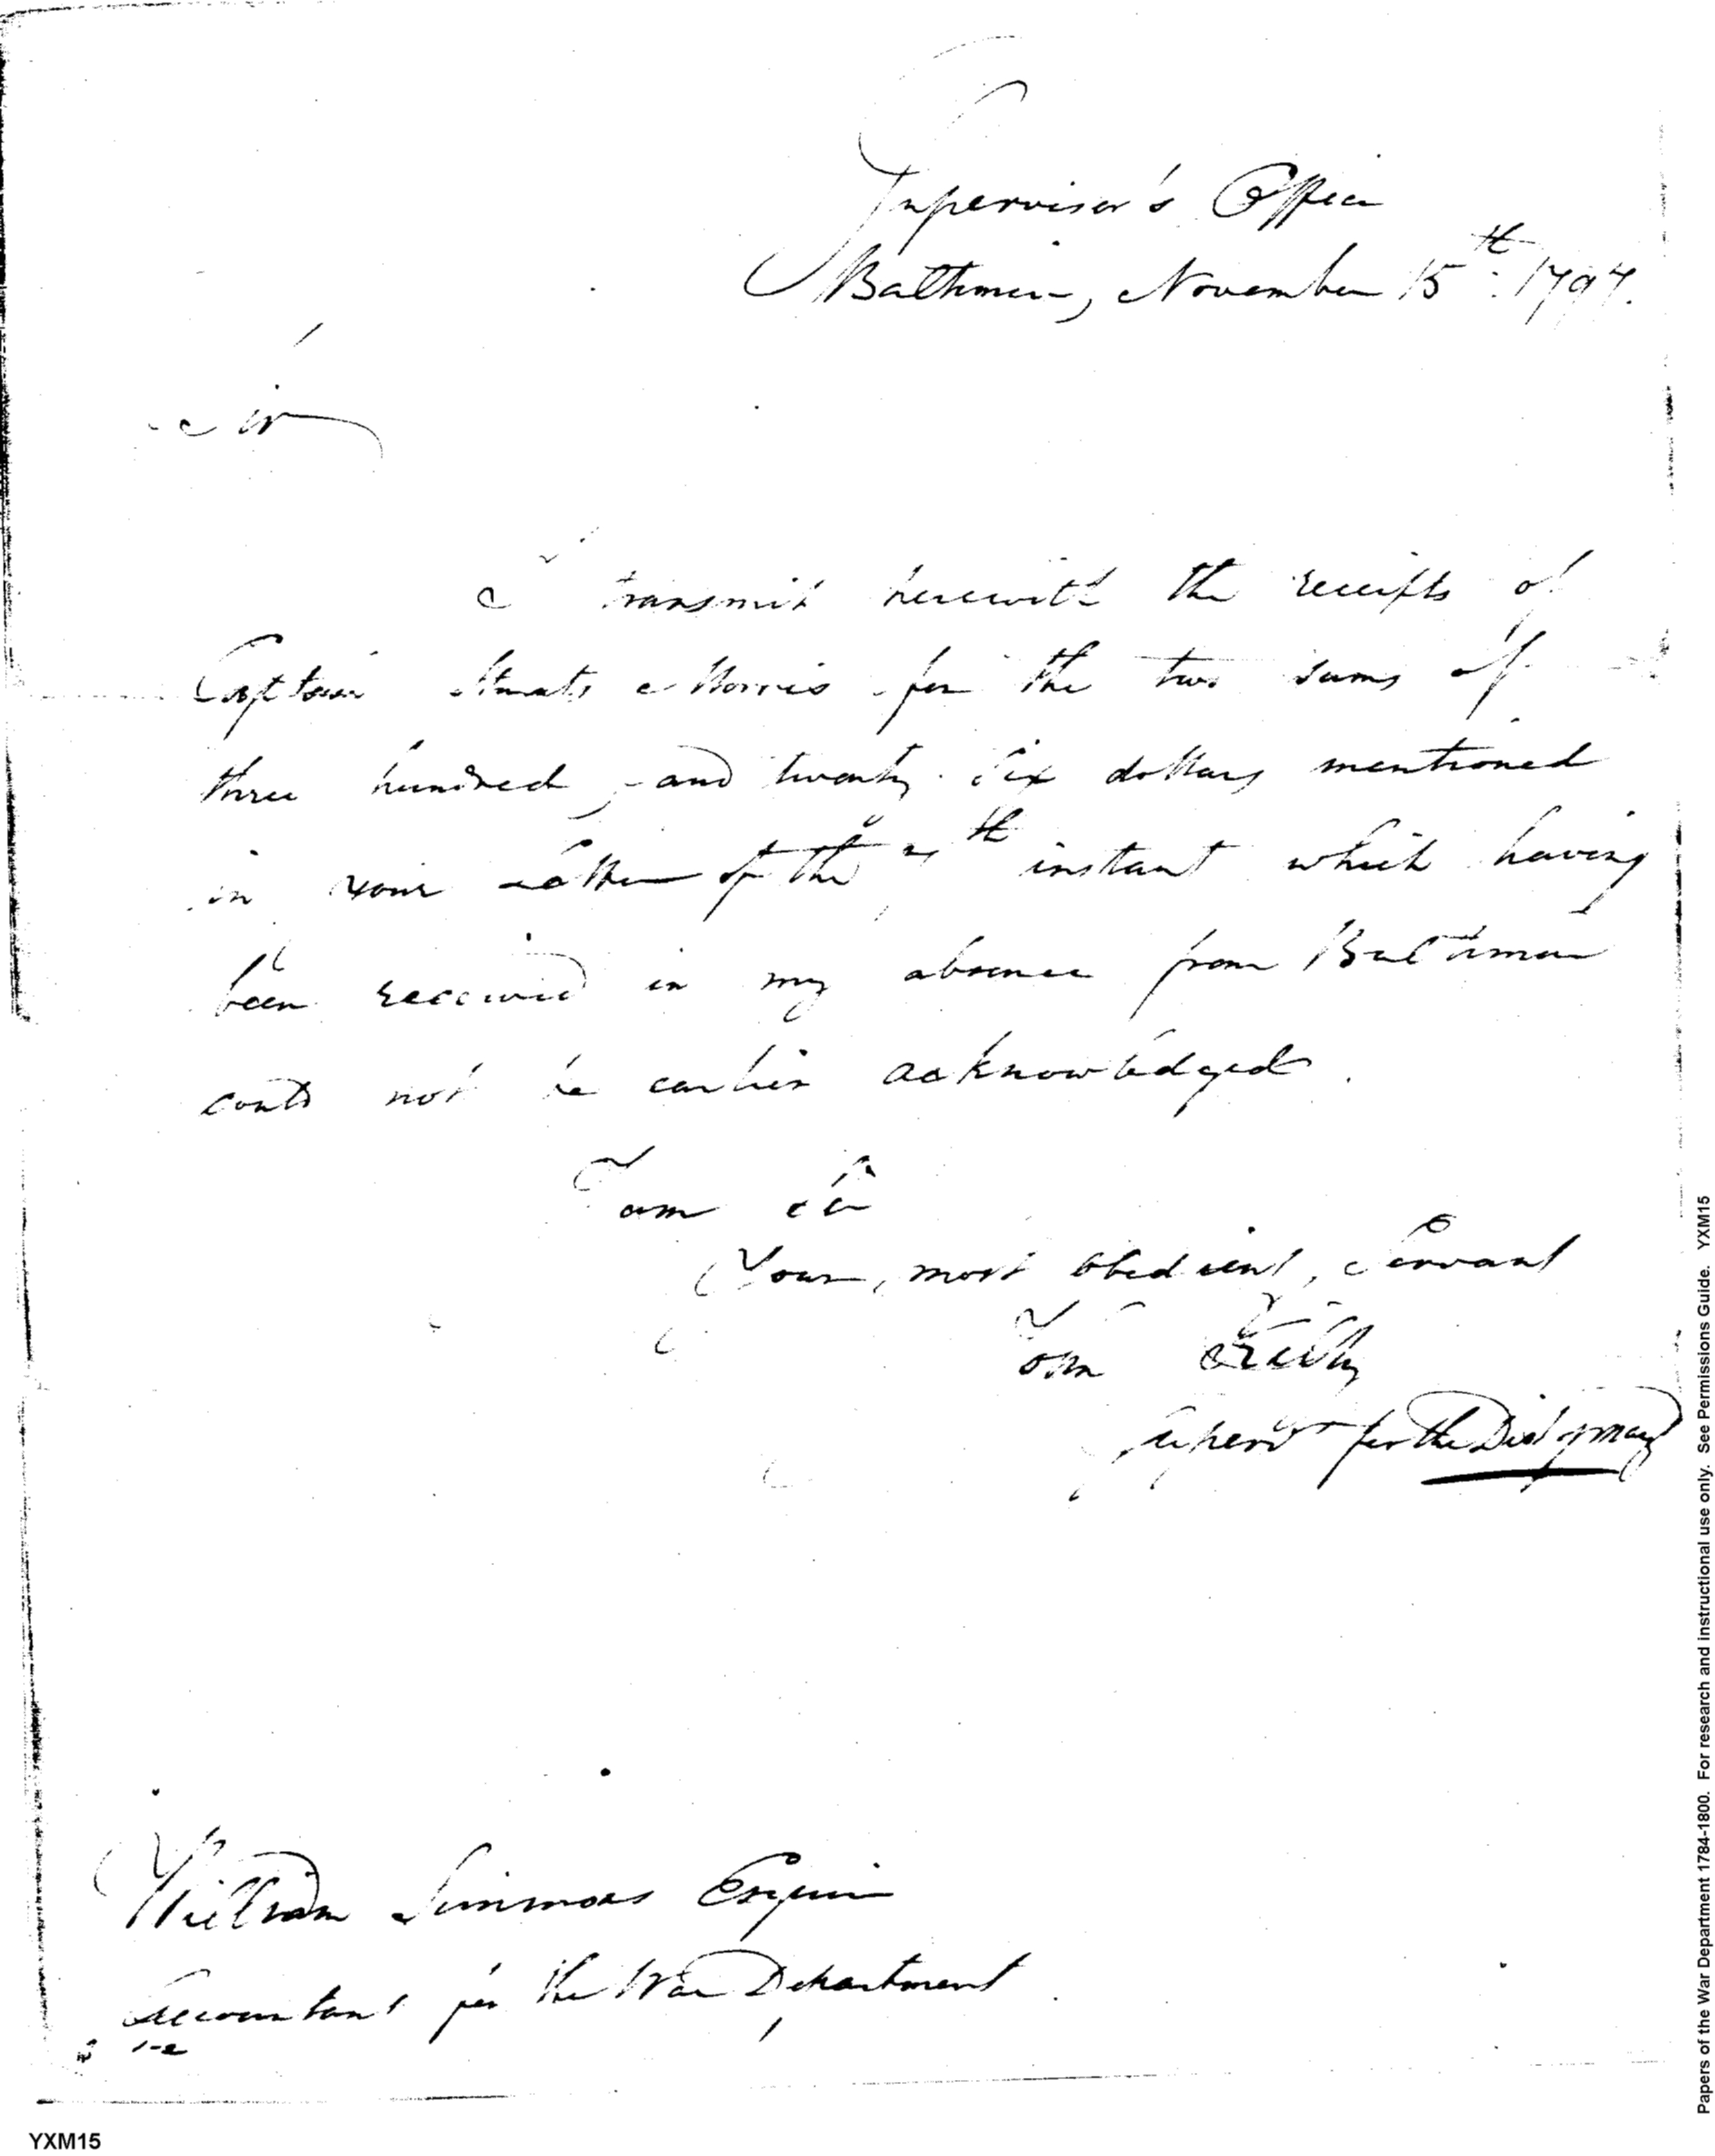 Supervisor's Office
Baltimore, November 15th: 1797.
Sir
I transmit herewith the receipts of
Captain Staats Morris for the two sums of
three hundred, and twenty six dollars mentioned
in your letter of the th instant which having
been received in my absence from Baltimore
could not be earlier acknowledged.
I am &c
Your, most obedient, Servant
Jon
Superv for the Dist of Mary
William Simmons Esquire
Accountant for the War Department
YXM15
Papers of the War Department 1784-1800. For research and instructional use only. See Permissions Guide. YXM15